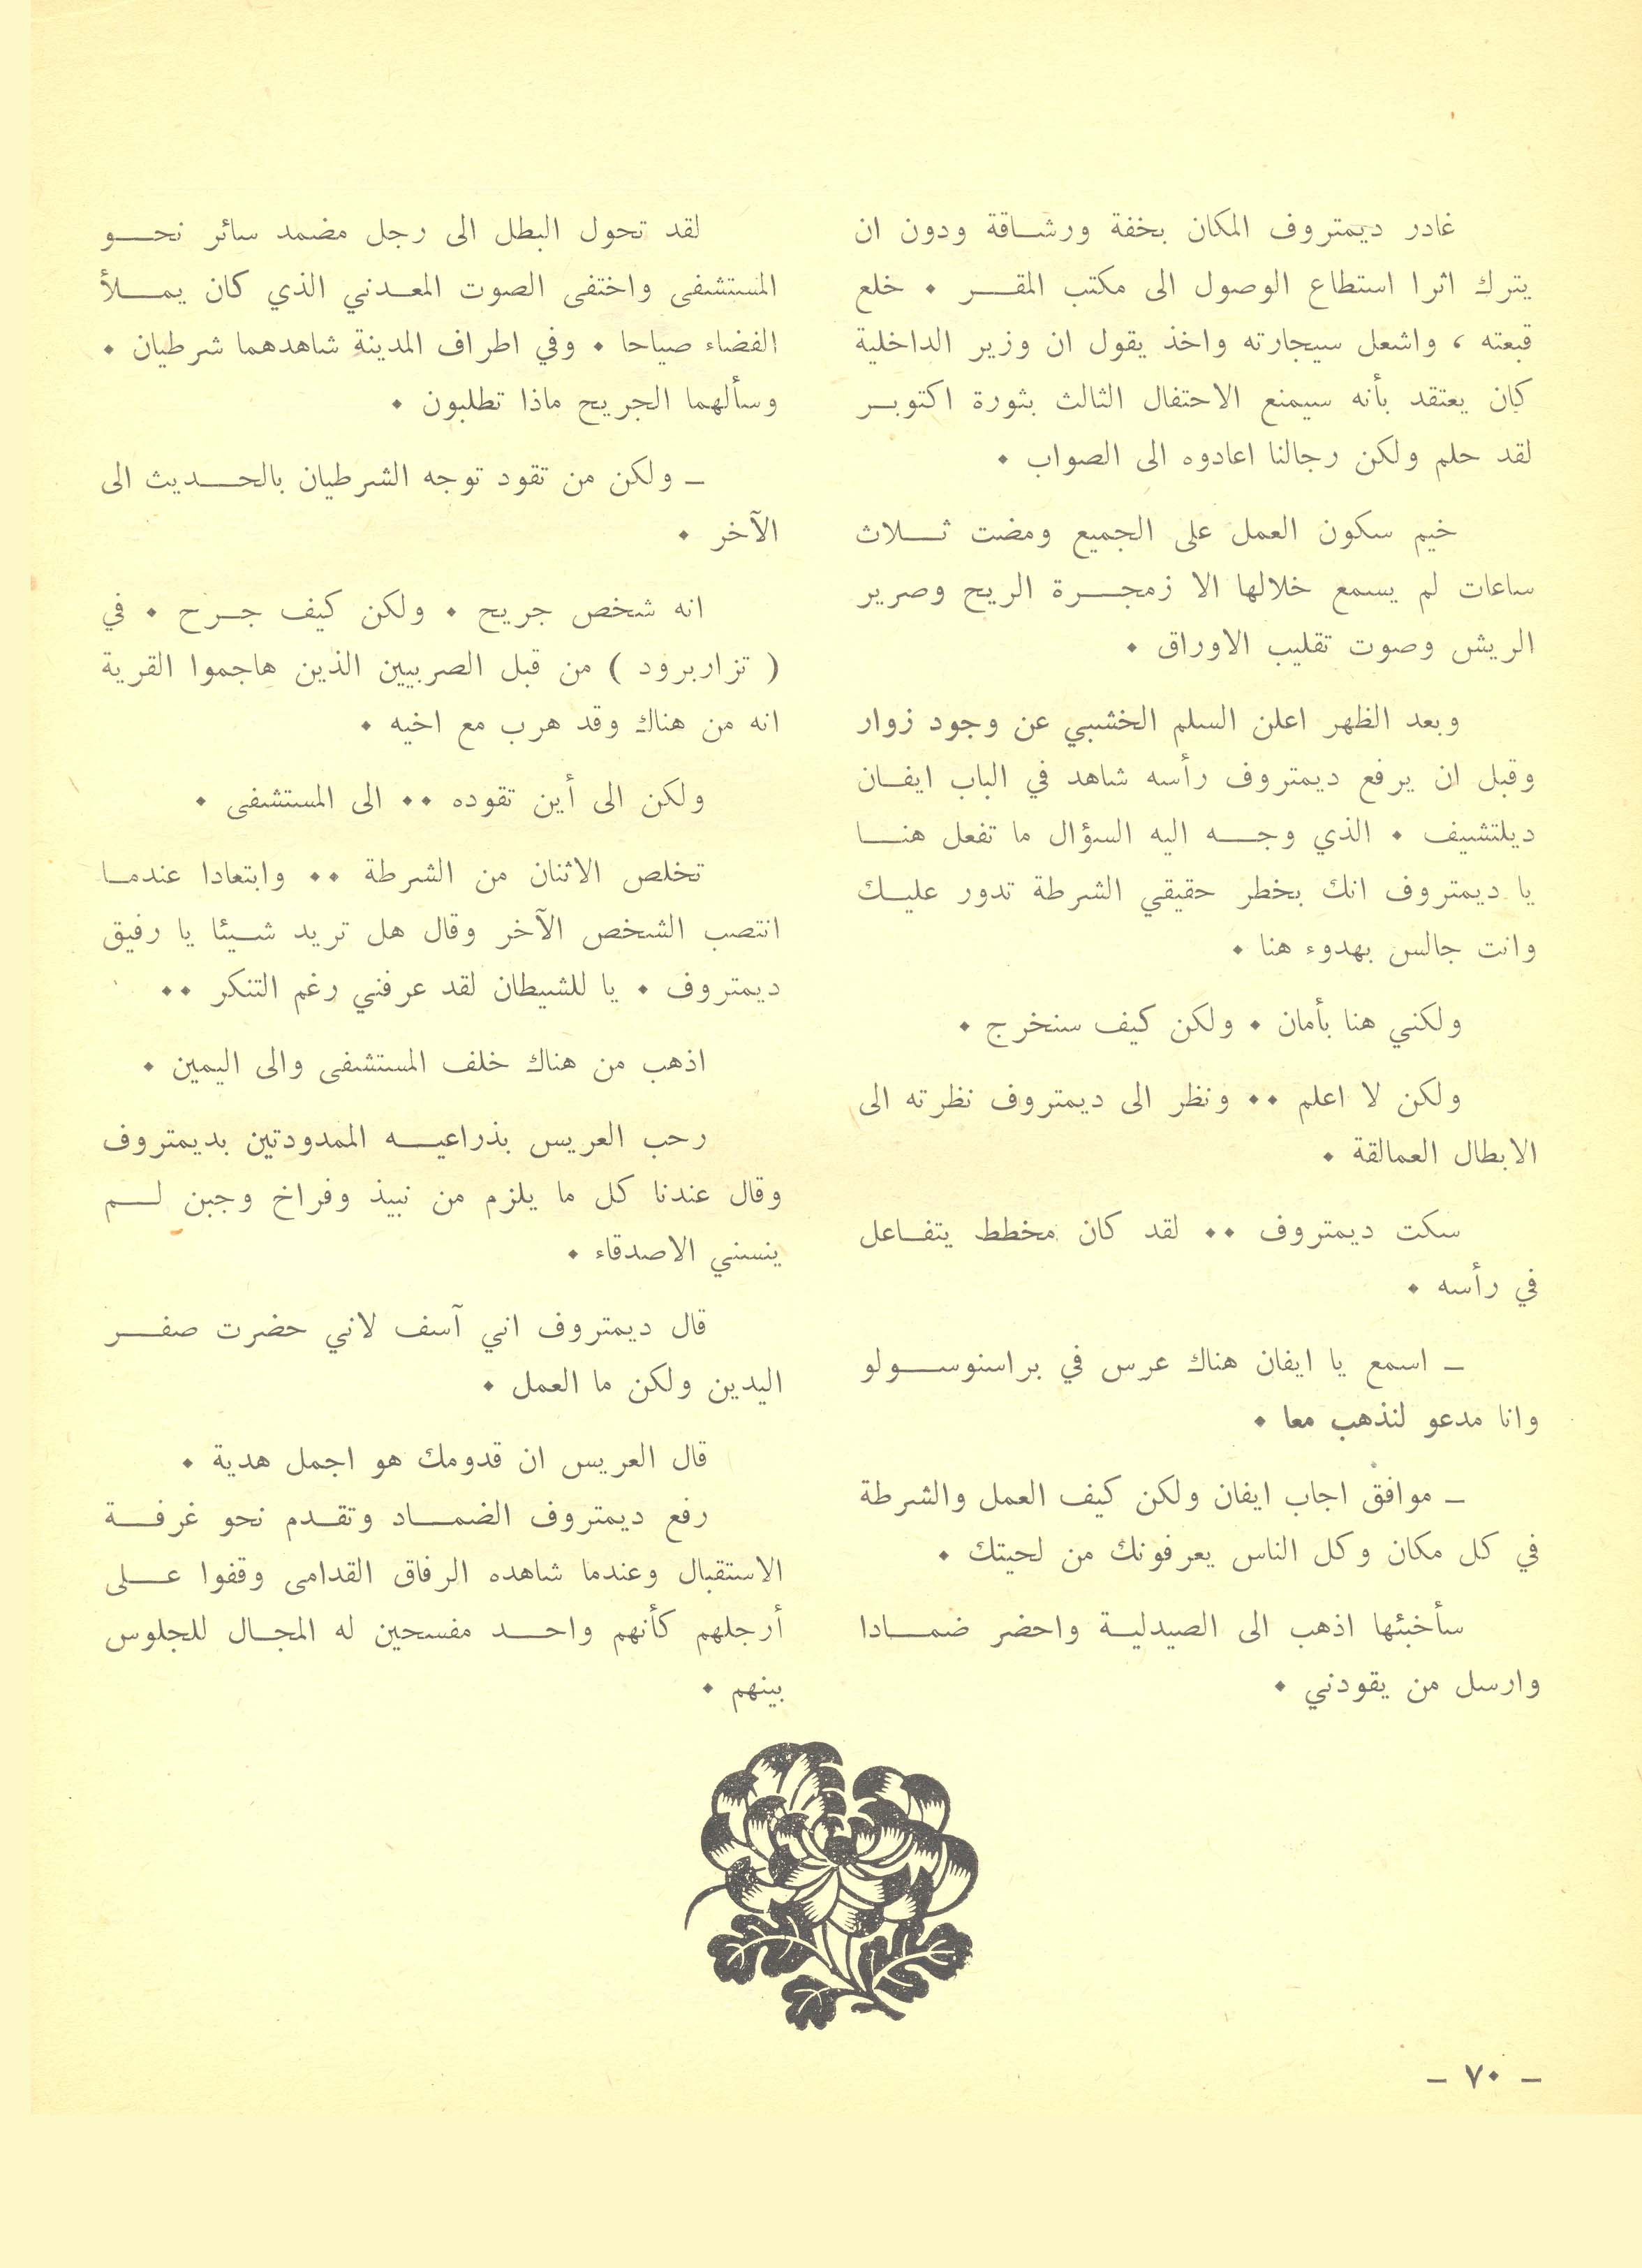 غادر ديمتروف المكان بخفة ورشاقة ودون ان
يترك اثرا استطاع الوصول الى مكتب المقر ٠ خلع
قبعته ، واشعل سيجارته واخذ يقول ان وزير الداخلية
كان يعتقد بأنه سيمنع الاحتفال الثالث بثورة اكتوبر
لقد حلم ولكن رجالنا اعادوه الى الصواب ٠
خيم سكون العمل على الجميع ومضت ثلاث
ساعات لم يسمع خلالها الا زمجرة الريح وصرير
الريش وصوت تقليب الاوراق ٠
وبعد الظهر اعلن السلم الخشبي عن وجود زوار
وقبل ان يرفع ديمتروف رأسه شاهد في الباب ايفان
ديلتشيف ٠ الذي وجه اليه السؤال ما تفعل هنا
يا ديمتروف انك بخطر حقيقي الشرطة تدور عليك
وانت جالس بهدوء هنا ٠
ولكني هنا بأمان ٠ ولكن كيف سنخرج ٠
ولكن لا اعلم ٠٠ ونظر الى ديمتروف نظرته الى
الابطال العمالقة ٠
سكت ديمتروف ٠٠ لقد كان مخطط يتفاعل
في رأسه ٠
ـ اسمع يا ايفان هناك عرس في براسنوسولو
وانا مدعو لنذهب معا ٠
ـ موافق اجاب ايفان ولكن كيف العمل والشرطة
في كل مكان وكل الناس يعرفونك من لحيتك ٠
سأخبئها اذهب الى الصيدلية واحضر ضمادا
وارسل من يقودني ٠
لقد تحول البطل الى رجل مضمد سائر نحو
المستشفى واختفى الصوت المعدني الذي كان يملأ
الفضاء صياحا ٠ وفي اطراف المدينة شاهدهما شرطيان ٠
وسألهما الجريح ماذا تطلبون ٠
ـ ولكن من تقود توجه الشرطيان بالحديث الى
الآخر ٠
انه شخص جريح ٠ ولكن كيف جرح ٠ في
( تزاربرود ) من قبل الصربيين الذين هاجموا القرية
انه من هناك وقد هرب مع اخيه ٠
ولكن الى أين تقوده ٠٠ الى المستشفى ٠
تخلص الاثنان من الشرطة ٠٠ وابتعادا عندما
انتصب الشخص الآخر وقال هل تريد شيئا يا رفيق
ديمتروف ٠ يا للشيطان لقد عرفني رغم التنكر ٠٠
اذهب من هناك خلف المستشفى والى اليمين ٠
رحب العريس بذراعيه الممدودتين بديمتروف
وقال عندنا كل ما يلزم من نبيذ وفراخ وجبن لم
ينسني الاصدقاء ٠
قال ديمتروف اني آسف لاني حضرت صفر
اليدين ولكن ما العمل ٠
قال العريس ان قدومك هو اجمل هدية ٠
رفع ديمتروف الضماد وتقدم نحو غرفة
الاستقبال وعندما شاهده الرفاق القدامى وقفوا على
أرجلهم كأنهم واحد مفسحين له المجال للجلوس
بينهم ٠
ـ ٧٠ ـ